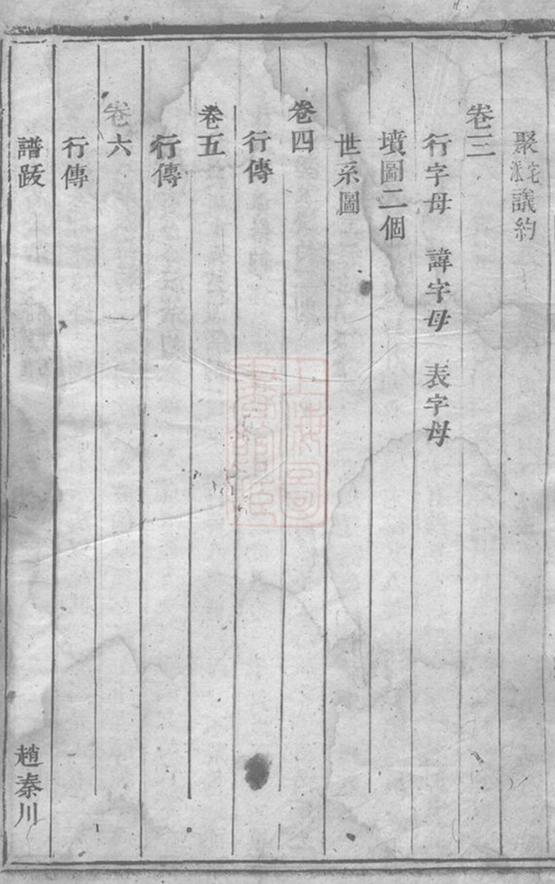 聚議約
卷三
行字母　諱字母　表字母
墳圖二個
世系圖
卷四
行傳
卷五
行傳
卷六
行傳
譜跋　趙秦川